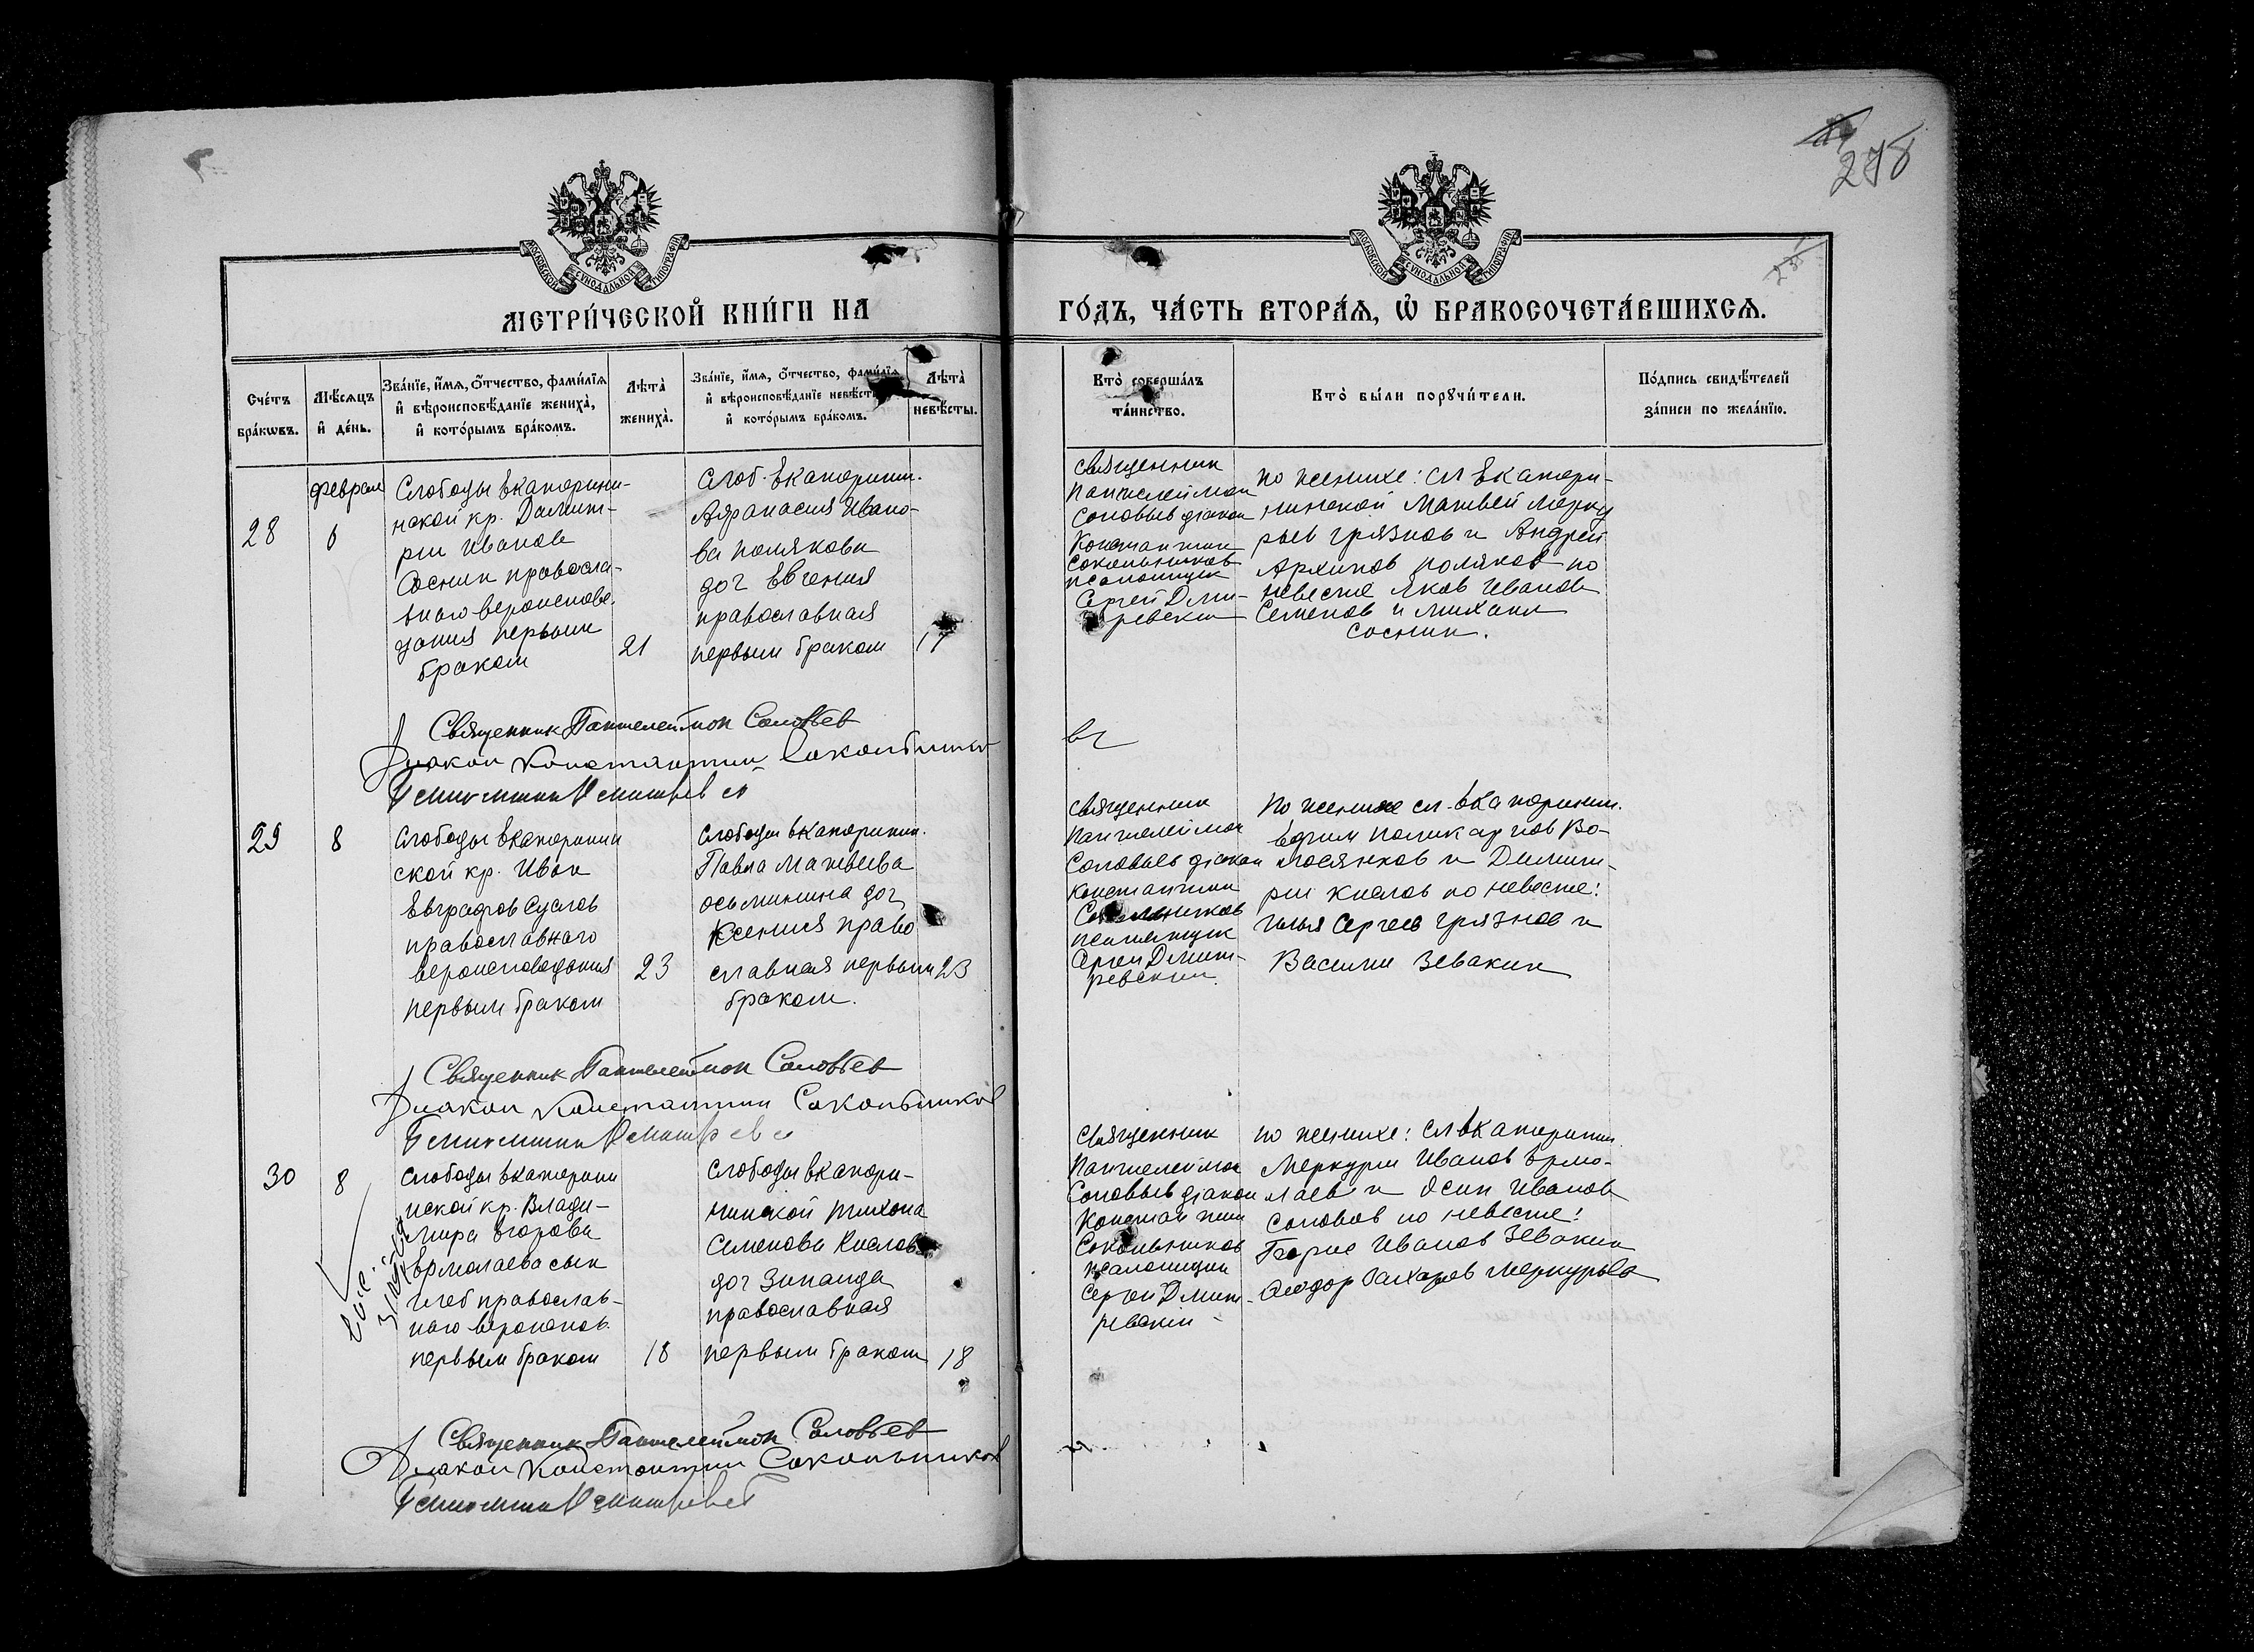 278
МОСКОВСКОЙ СѴНОДАЛЬНОЙ ТИПОГРАФІИ
МОСКОВСКОЙ СѴНОДАЛЬНОЙ ТИПОГРАФІИ
МЕТРИ́ЧЕСКОЙ КНИ́ГИ НА
ГО́ДЪ, ЧА́СТЬ ВТОРА́Ѧ, Ѡ҆ БРАКОСОЧЕТА́ВШИХСѦ.
Сче́тъ бра́кѡвъ.
Мѣ́сѧцъ и҆ де́нь.
Зва́нїе, и҆́мѧ, ѻ҆́тчество, фами́лїѧ и҆ вѣроисповѣ́данїе жениха̀, и҆ кото́рымъ бра́комъ.
Лѣта̀ жениха̀.
Зва́нїе, и҆́мѧ, ѻ҆́тчество, фами́лїѧ и҆ вѣроисповѣ́данїе невѣ́сты и҆ кото́рымъ бра́комъ.
Лѣта̀ невѣ́сты.
Кто̀ соверша́лъ та́инство.
Кто̀ бы́ли порꙋчи́тели.
По́дпись свидѣ́телей за́писи по жела́нїю.
28
Феврал
6
Слободы Екатерини-
нской кр. Дмит-
рии Иванов
Соснин правосла-
внаго вероиспове.
дания первым
браком
21
Слоб. Екатеринин.
Афанасия Ивано-
ва Полякова
доч Евгения
православная
первым браком
17
Священник
Пантелеймон
Соловьев діакон
Константин
Сокольников
псаломщик
Сергей Дми-
ревски
по женихе: сл Екатери-
нинской Матвей Мерку
рьев Грязнов и Андрей
Архипов Поляков по
невесте Яков Иванов
Семенов и Михаил
Соснин.
Священник Пантелеймон Соловьев
Диакон Константин Сокольников
29
8
Слободы Екатеринин
ской кр. Иван
Евграфов Суслов
православнаго
вероисповедания
первым браком
23
Слободы Екатеринин.
Павла Матвеева
Осьминина доч
Ксения право
славная первым
браком.
23
Священник
Пантелеймон
Соловьев діакон
Константин
Сокольников
псаломщик
Сергей Дмит-
ревский.
По женихе сл. Екатеринин.
Ефим Поликарпов Во-
и Дмит-
рий Кислов по невесте:
Илья Сергеев Грязнов и
Василий Зевакин
Священник Пантелеймон Соловьев
Диакон Константин Сокольников
30
8
Слободы Екатерини
нской кр. Влади-
мира Егорова
Ермолаева сын
Глеб православ-
наго вероиспов.
первым браком
18
Слободы Екатери-
нинской Тихона
Семенова Кислова
доч Зинаида
православная
первым браком
18
Священник
Пантелеймон
Соловьев діакон
Константин
Сокольников
псаломщик
Сергей Дмит-
ревский
по женихе: сл Екатеринин.
Меркурий Иванов Ермо-
лаев и Осип Иванов
Соловов по невесте:
Георгие Иванов Зевакин
Феодор Захаров Меркурьев
Священник Пантелеймон Соловьев
Диакон Константин Сокольников